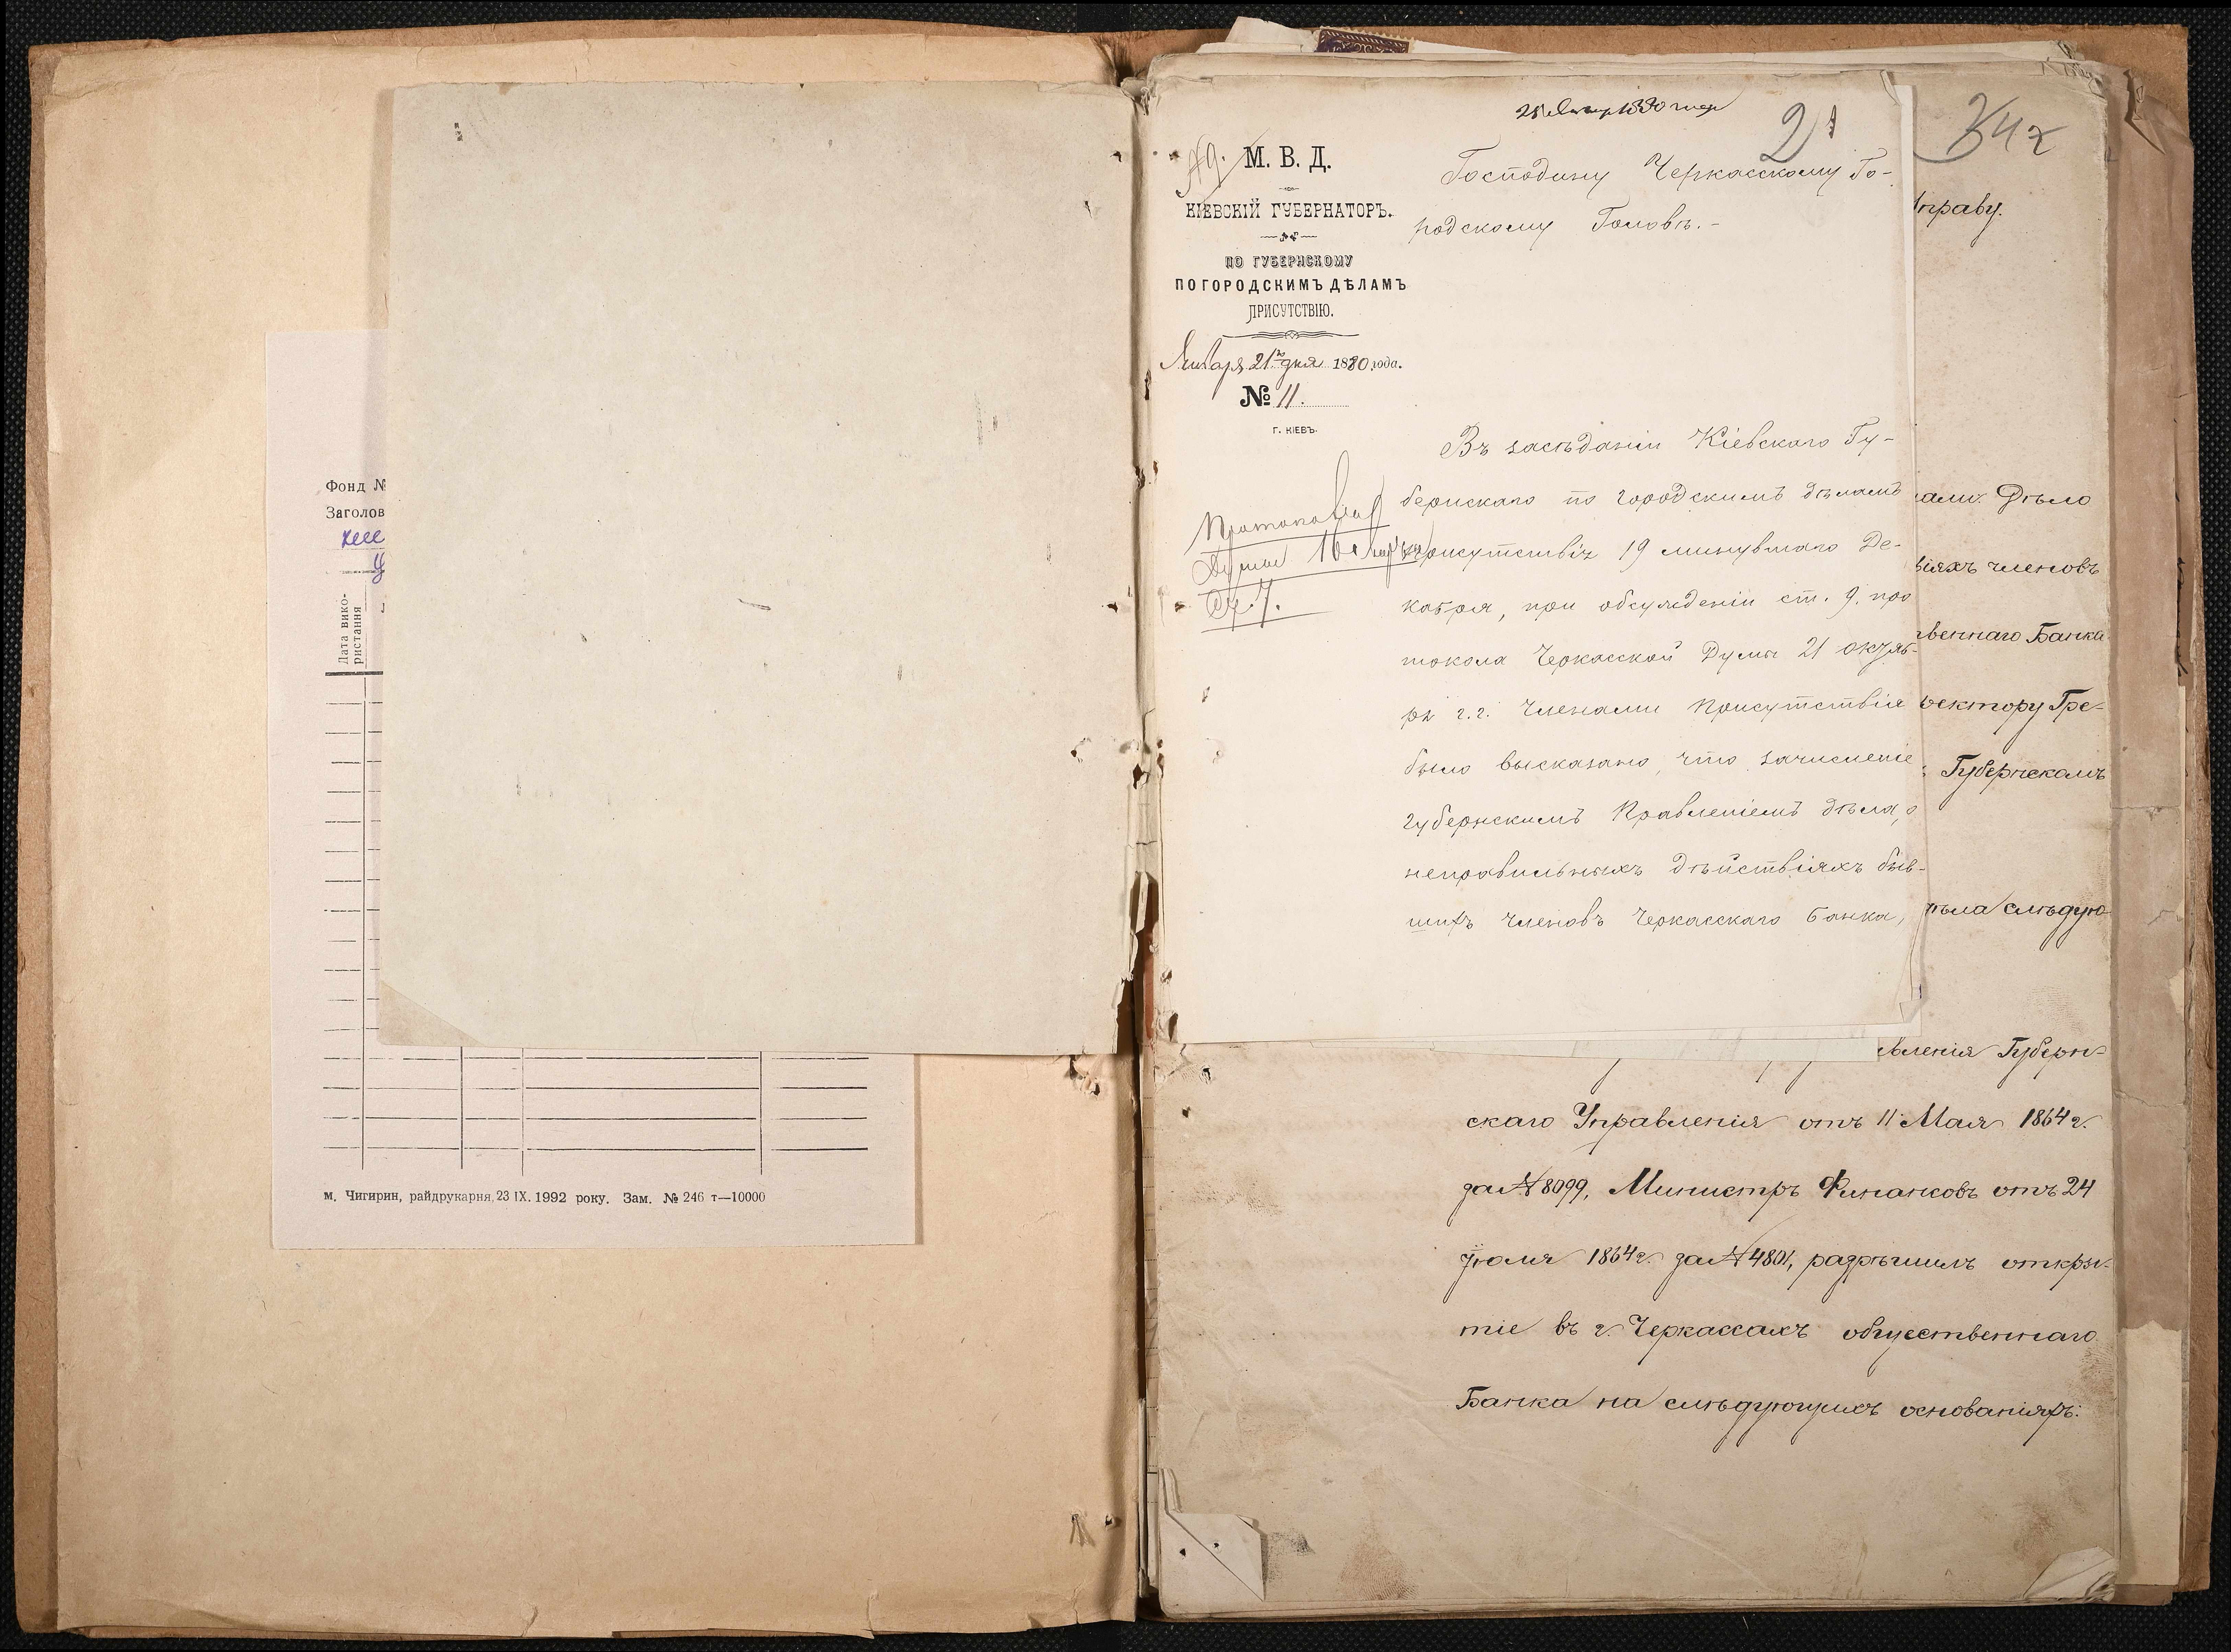 Фонд №
Заголов
Дата вико-
ристання
м. Чигирин, райдрукарня, 23 IX. 1992 року. Зам. № 246 т—10000
21
М. В. Д.
КІЕВСКІЙ ГУБЕРНАТОРЪ.
ПО ГУБЕРНСКОМУ
ПО ГОРОДСКИМЪ ДѢЛАМЪ
ПРИСУТСТВІЮ.
Января 21го дня 1880 года.
№ 11.
Г. КІЕВЪ.
Господину Черкасскому Го-
родскому Головѣ.-
Въ засѣданіи Кіевскаго Гу-
бернскаго по городскимъ дѣламъ
присутствія 19 минувшаго Де-
кабря, при обсужденіи ст. 9. про
токола Черкасской Думы 21 октяб-
ря г.г. Членами Присутствія
было высказано, что зачисленіе
губернскимъ Правленіемъ дѣла, о
неправильныхъ дѣйствіяхъ быв-
шихъ членовъ Черкасскаго Банка,
Думы
ст. 7.
праву.
Дѣло
віяхъ членовъ
веннаго Банка
ректору Гре-
Губернскомъ
ѣла слѣдую
вленія Губерн-
скаго Управленія отъ 11 Мая 1864 г.
за № 8099, Министръ Финансовъ отъ 24
Іюля 1864 г. за № 4801, разрѣшилъ откры-
тіе въ г. Черкассахъ общественнаго
Банка на слѣдующихъ основаніяхъ: